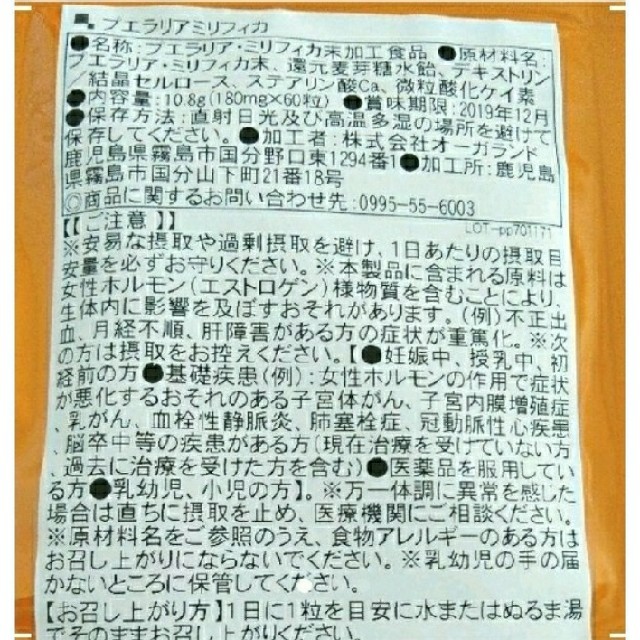 プエラリアミリフィカ
●名称:プエラリア・ミリフィカ末加工食品 ●原材料名:
プエラリア・ミリフィカ末、還元麦芽糖水飴、デキストリン
/結晶セルロース、ステアリン酸Ca、微粒酸化ケイ素
●内容量:10.8g(180mg×60粒) ●賞味期限:2019年12月
●保存方法:直射日光及び高温多湿の場所を避けて
保存してください。●加工者:株式会社オーガランド
鹿児島県霧島市国分野口東1294番1●加工所:鹿児島
県霧島市国分山下町21番18号
◎商品に関するお問い合わせ先:0995-55-6003
LOT-pp701171
【【ご注意】】
※安易な摂取や過剰摂取を避け、1日あたりの摂取目
安量を必ずお守りください。※本製品に含まれる原料は
女性ホルモン(エストロゲン)様物質を含むことにより、
生体内に影響を及ぼすおそれがあります。(例)不正出
血、月経不順、肝障害がある方の症状が重篤化。※次
の方は摂取をお控えください。【●妊娠中、授乳中、初
経前の方●基礎疾患(例):女性ホルモンの作用で症状
が悪化するおそれのある子宮体がん、子宮内膜増殖症
、乳がん、血栓性静脈炎、肺塞栓症、冠動脈性心疾患
、脳卒中等の疾患がある方(現在治療を受けていない方
、過去に治療を受けた方を含む)●医薬品を服用してい
る方●乳幼児、小児の方】。※万一体調に異常を感じた
場合は直ちに摂取を止め、医療機関にご相談ください。
※原材料名をご参照のうえ、食物アレルギーのある方は
お召し上がりにならないでください。※乳幼児の手の届
かないところに保管してください。
【お召し上がり方】1日に1粒を目安に水またはぬるま湯
でそのままお召し上がりください。